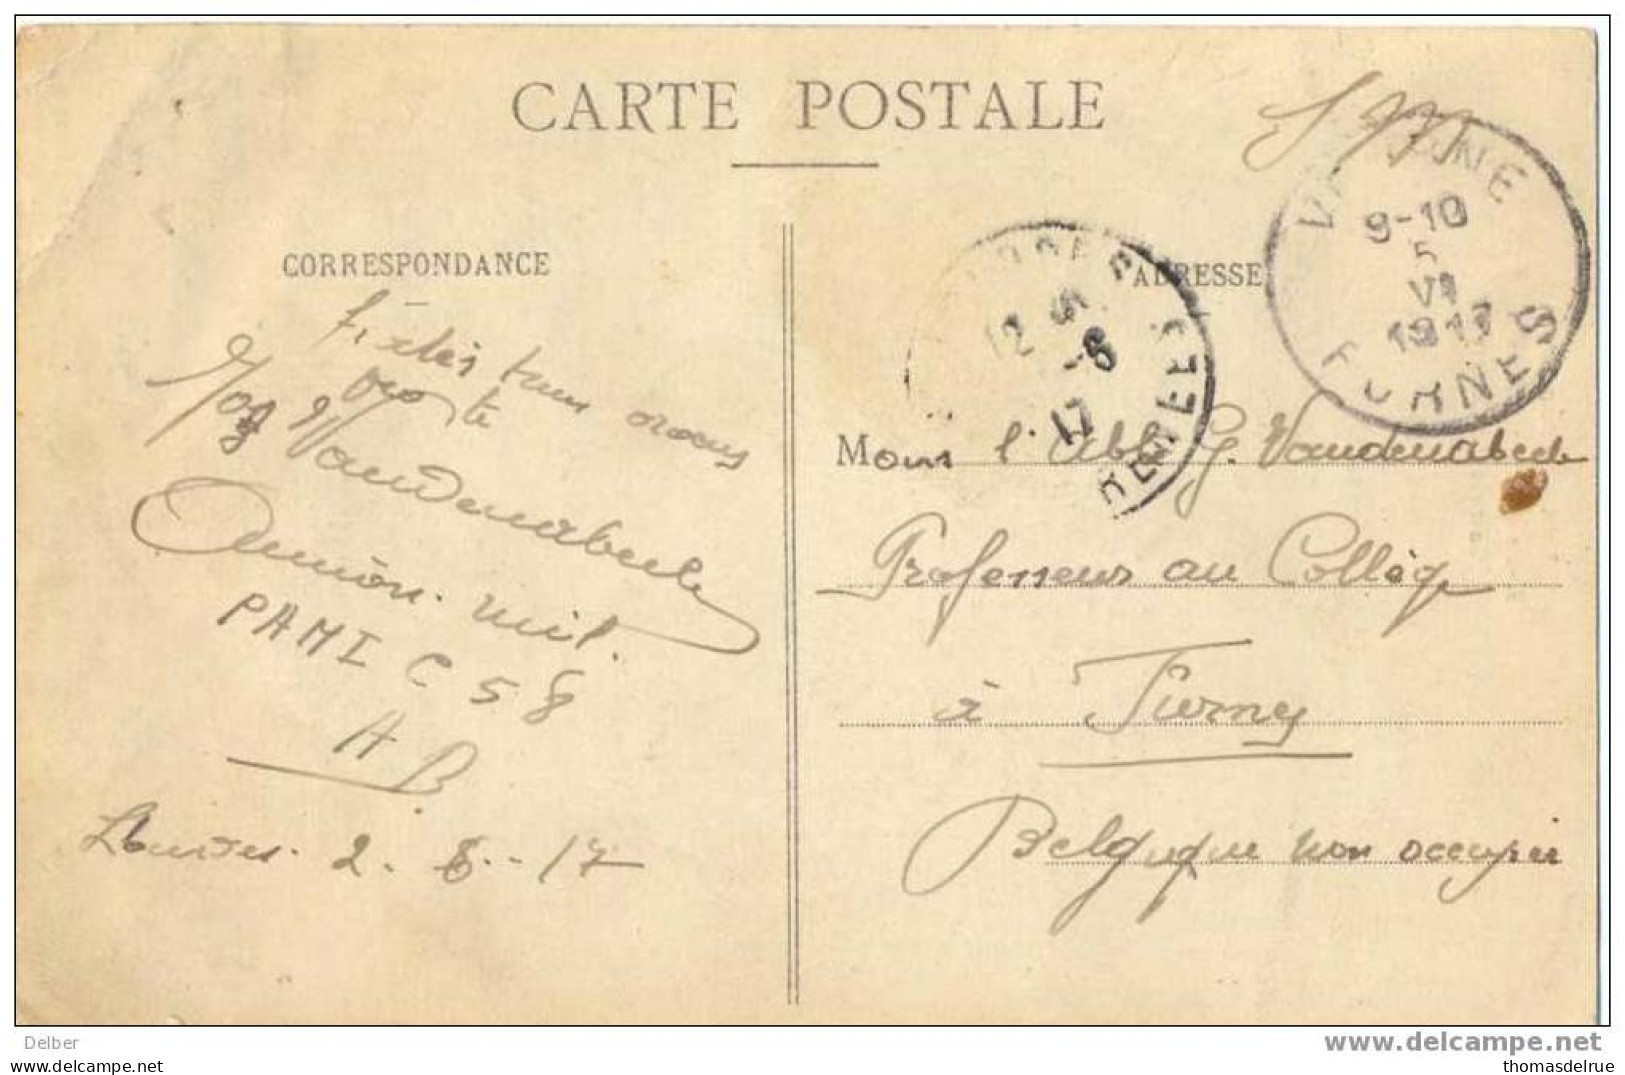 CARTE POSTALE
S M
CORRESPONDANCE
ADRESSE
9-10
5
VI
1917
FURNES
12
5
-6
17
Jos Vandenabeele
Aumôn. mil.
PAMI C 58
A B.
Lourdes. 2. 6.-17
Mons l'abbé G. Vandenabeele
Professeur au Collège
à Furnes
Belgique non occupée
Delber
www.delcampe.net
thomasdelrue